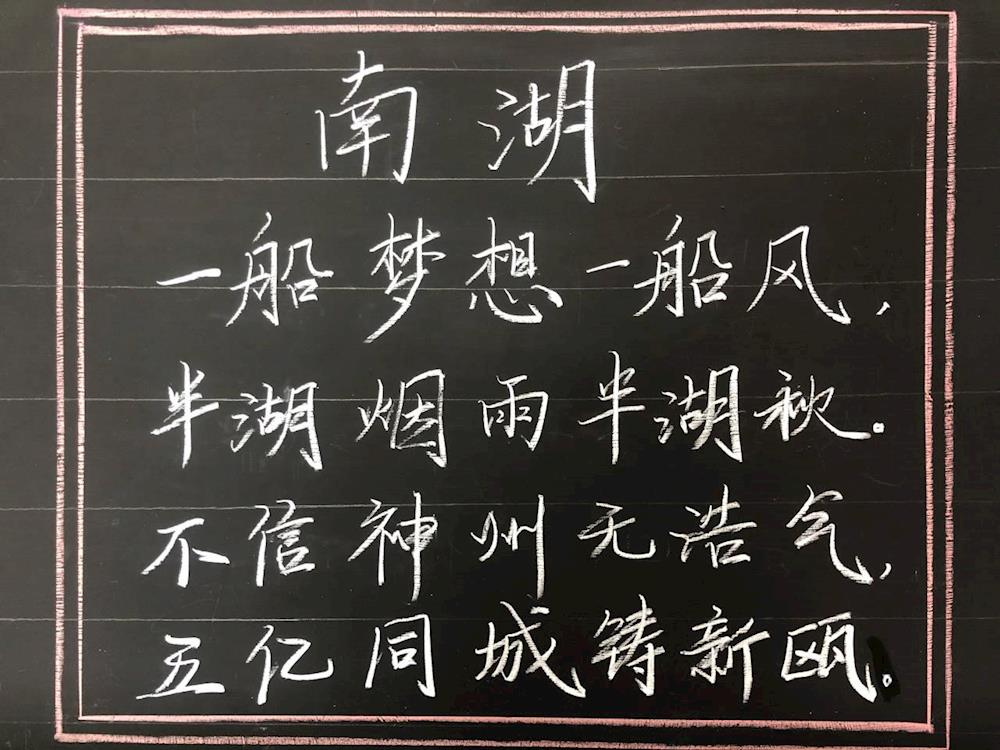 南湖
一船梦想一船风,
半湖烟雨半湖秋。
不信神州无浩气,
五亿同城铸新瓯。